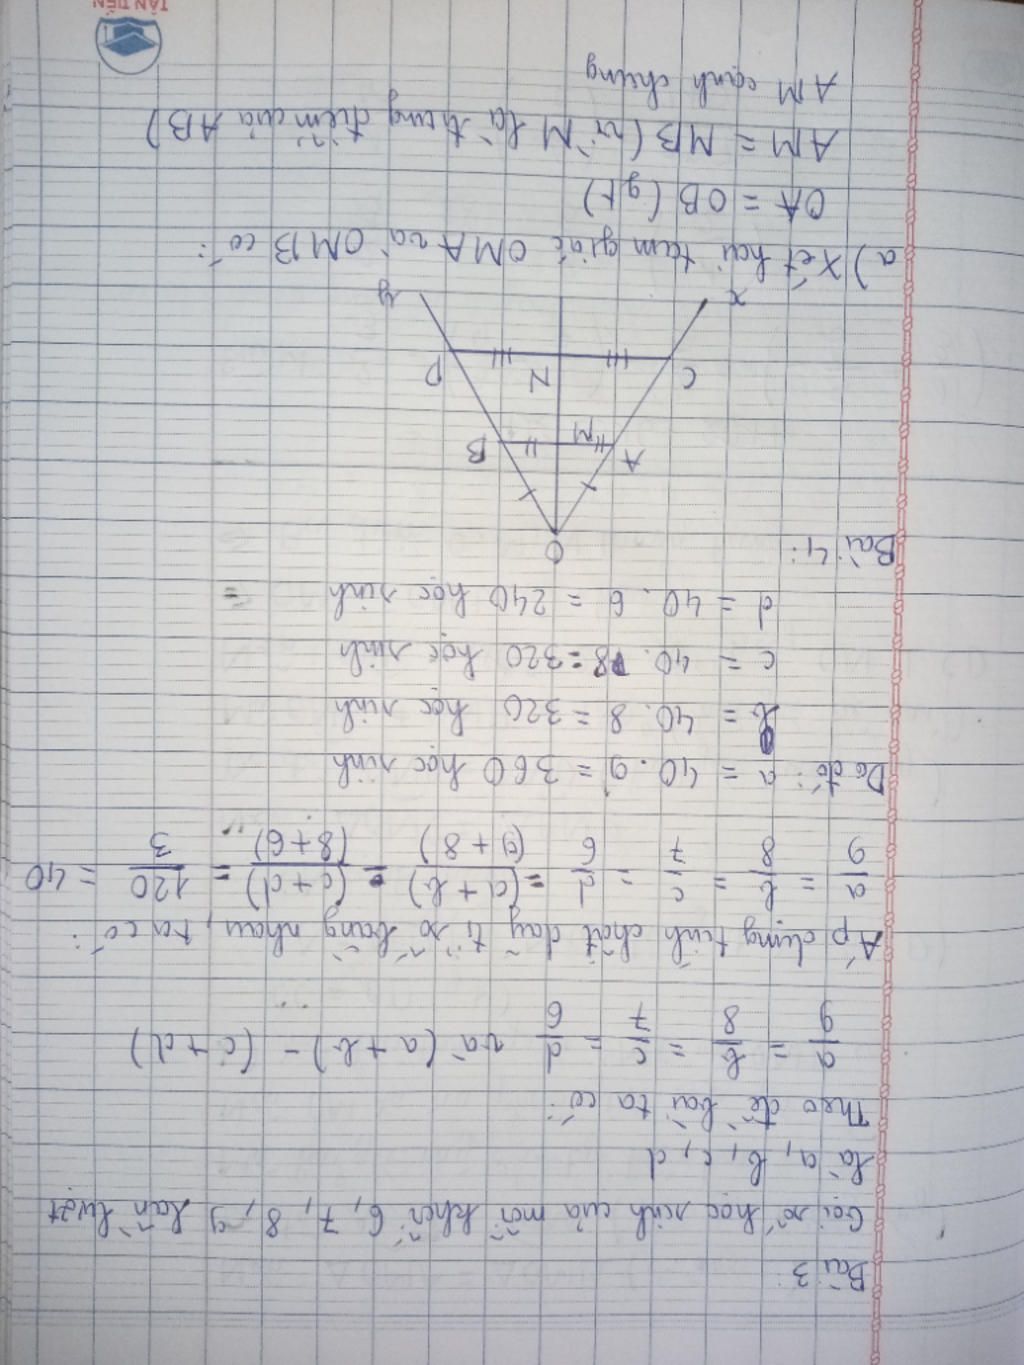 Bài 3:
Gọi số học sinh của mỗi khối 6, 7, 8, 9 lần lượt
là a, b, c, d
Theo đề bài ta có:
a/9 = b/8 = c/7 = d/6 và (a+b) - (c+d)
Áp dụng tính chất dãy tỉ số bằng nhau, ta có:
a/9 = b/8 = c/7 = d/6 = (a+b)/(9+8) - (c+d)/(8+6) = 120/3 = 40
Do đó: a = 40 . 9 = 360 học sinh
b = 40 . 8 = 320 học sinh
c = 40 . 8 = 320 học sinh
d = 40 . 6 = 240 học sinh =
Bài 4:
O
A M B
C N D
x y
a) Xét hai tam giác OMA và OMB có:
OA = OB (gt)
AM = MB (vì M là trung điểm của AB)
AM cạnh chung
TÂN TIẾN